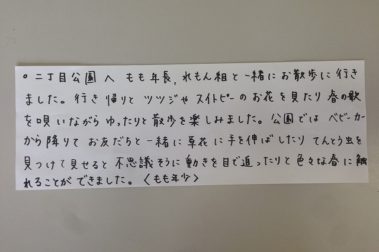 ○二丁目公園へ もも年長、れもん組と一緒にお散歩に行き
ました。行き帰りと ツツジや スイトピーの お花を見たり 春の歌
を唄いながら ゆったりと 散歩を楽しみました。公園では ベビーカー
から降りて お友だちと一緒に 草花に手を伸ばしたり てんとう虫を
見つけて見せると 不思議そうに 動きを目で追ったりと 色々な春に触
れることができました。〈もも年少〉